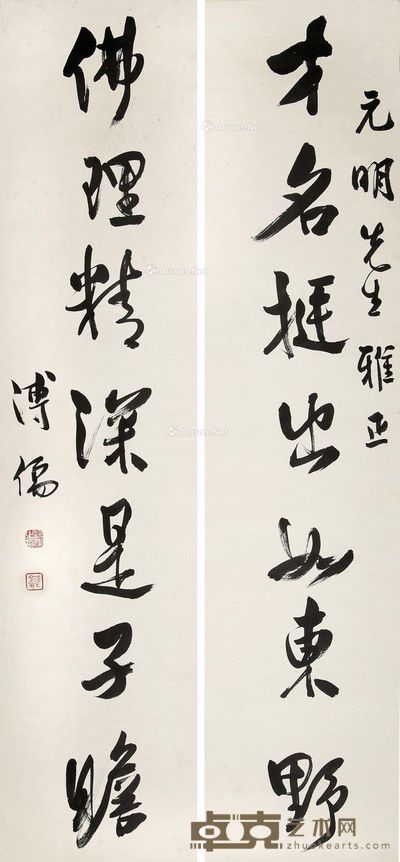 元明先生雅正
才名挺出如東野
佛理精深是子瞻
溥儒
Artron.Net
Artron.Net
Artron.Net
卓克艺术网
zhuokearts.com